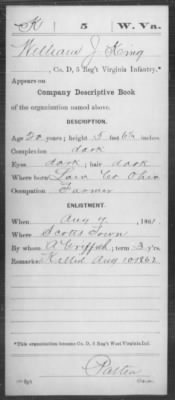 K 5 W. Va.
William J King
Co. D, 5 Reg't Virginia Infantry.*
Appears on
Company Descriptive Book
of the organization named above.
DESCRIPTION.
Age 20 years; height 5 feet 6½ inches
Complexion dark
Eyes dark; hair dark
Where born Law Co Ohio
Occupation Farmer
ENLISTMENT.
When Aug 7, 1861
Where Scotts Town
By whom A Griffith; term 3 y'rs.
Remarks: Killed Aug 10 1862
*This organization became Co. D, 5 Reg't West Virginia Inf.